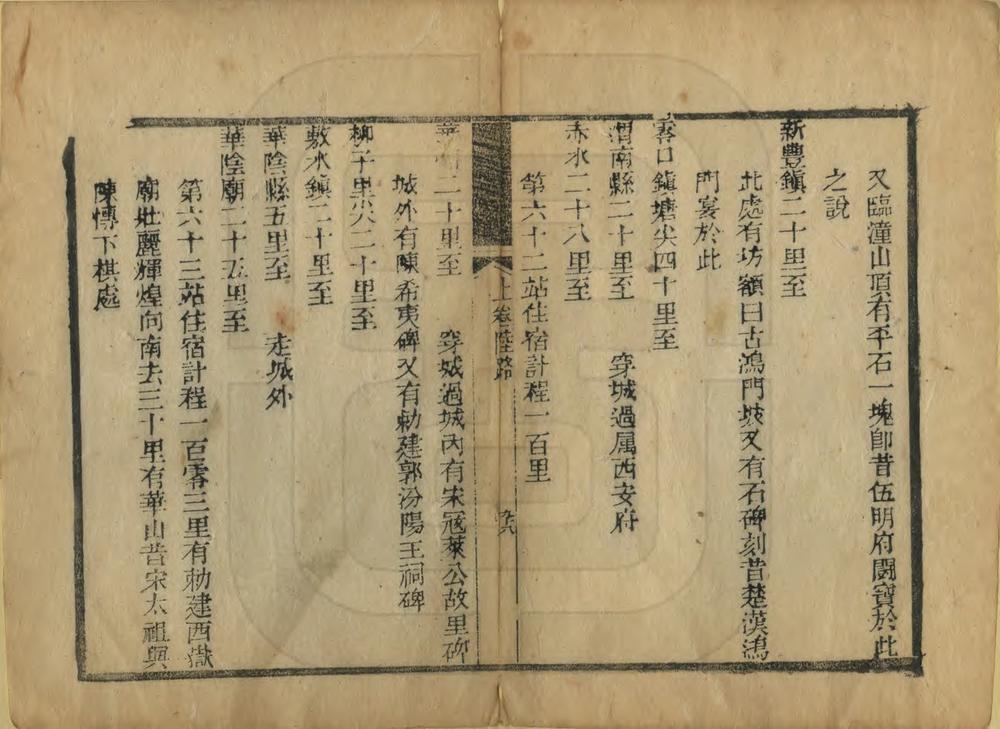 又臨潼山頂有平石一塊卽昔伍明府鬪寶於此
之說
新豐鎮二十里至
此處有坊額曰古鴻門坡又有石碑刻昔楚漢鴻
門宴於此
零口鎮塘尖四十里至
渭南縣二十里至 穿城過属西安府
赤水二十八里至
第六十二站住宿計程一百里
上卷 陸路
華州二十里至 穿城過城內有宋寇萊公故里碑
城外有陳希夷碑又有勅建郭汾陽王祠碑
柳子里六二十里至
敷水鎮二十里至
華陰縣五里至 走城外
華陰廟二十五里至
第六十三站住宿計程一百零三里有勅建西嶽
廟壯麗輝煌向南去三十里有華山昔宋太祖與
陳愽下棋處